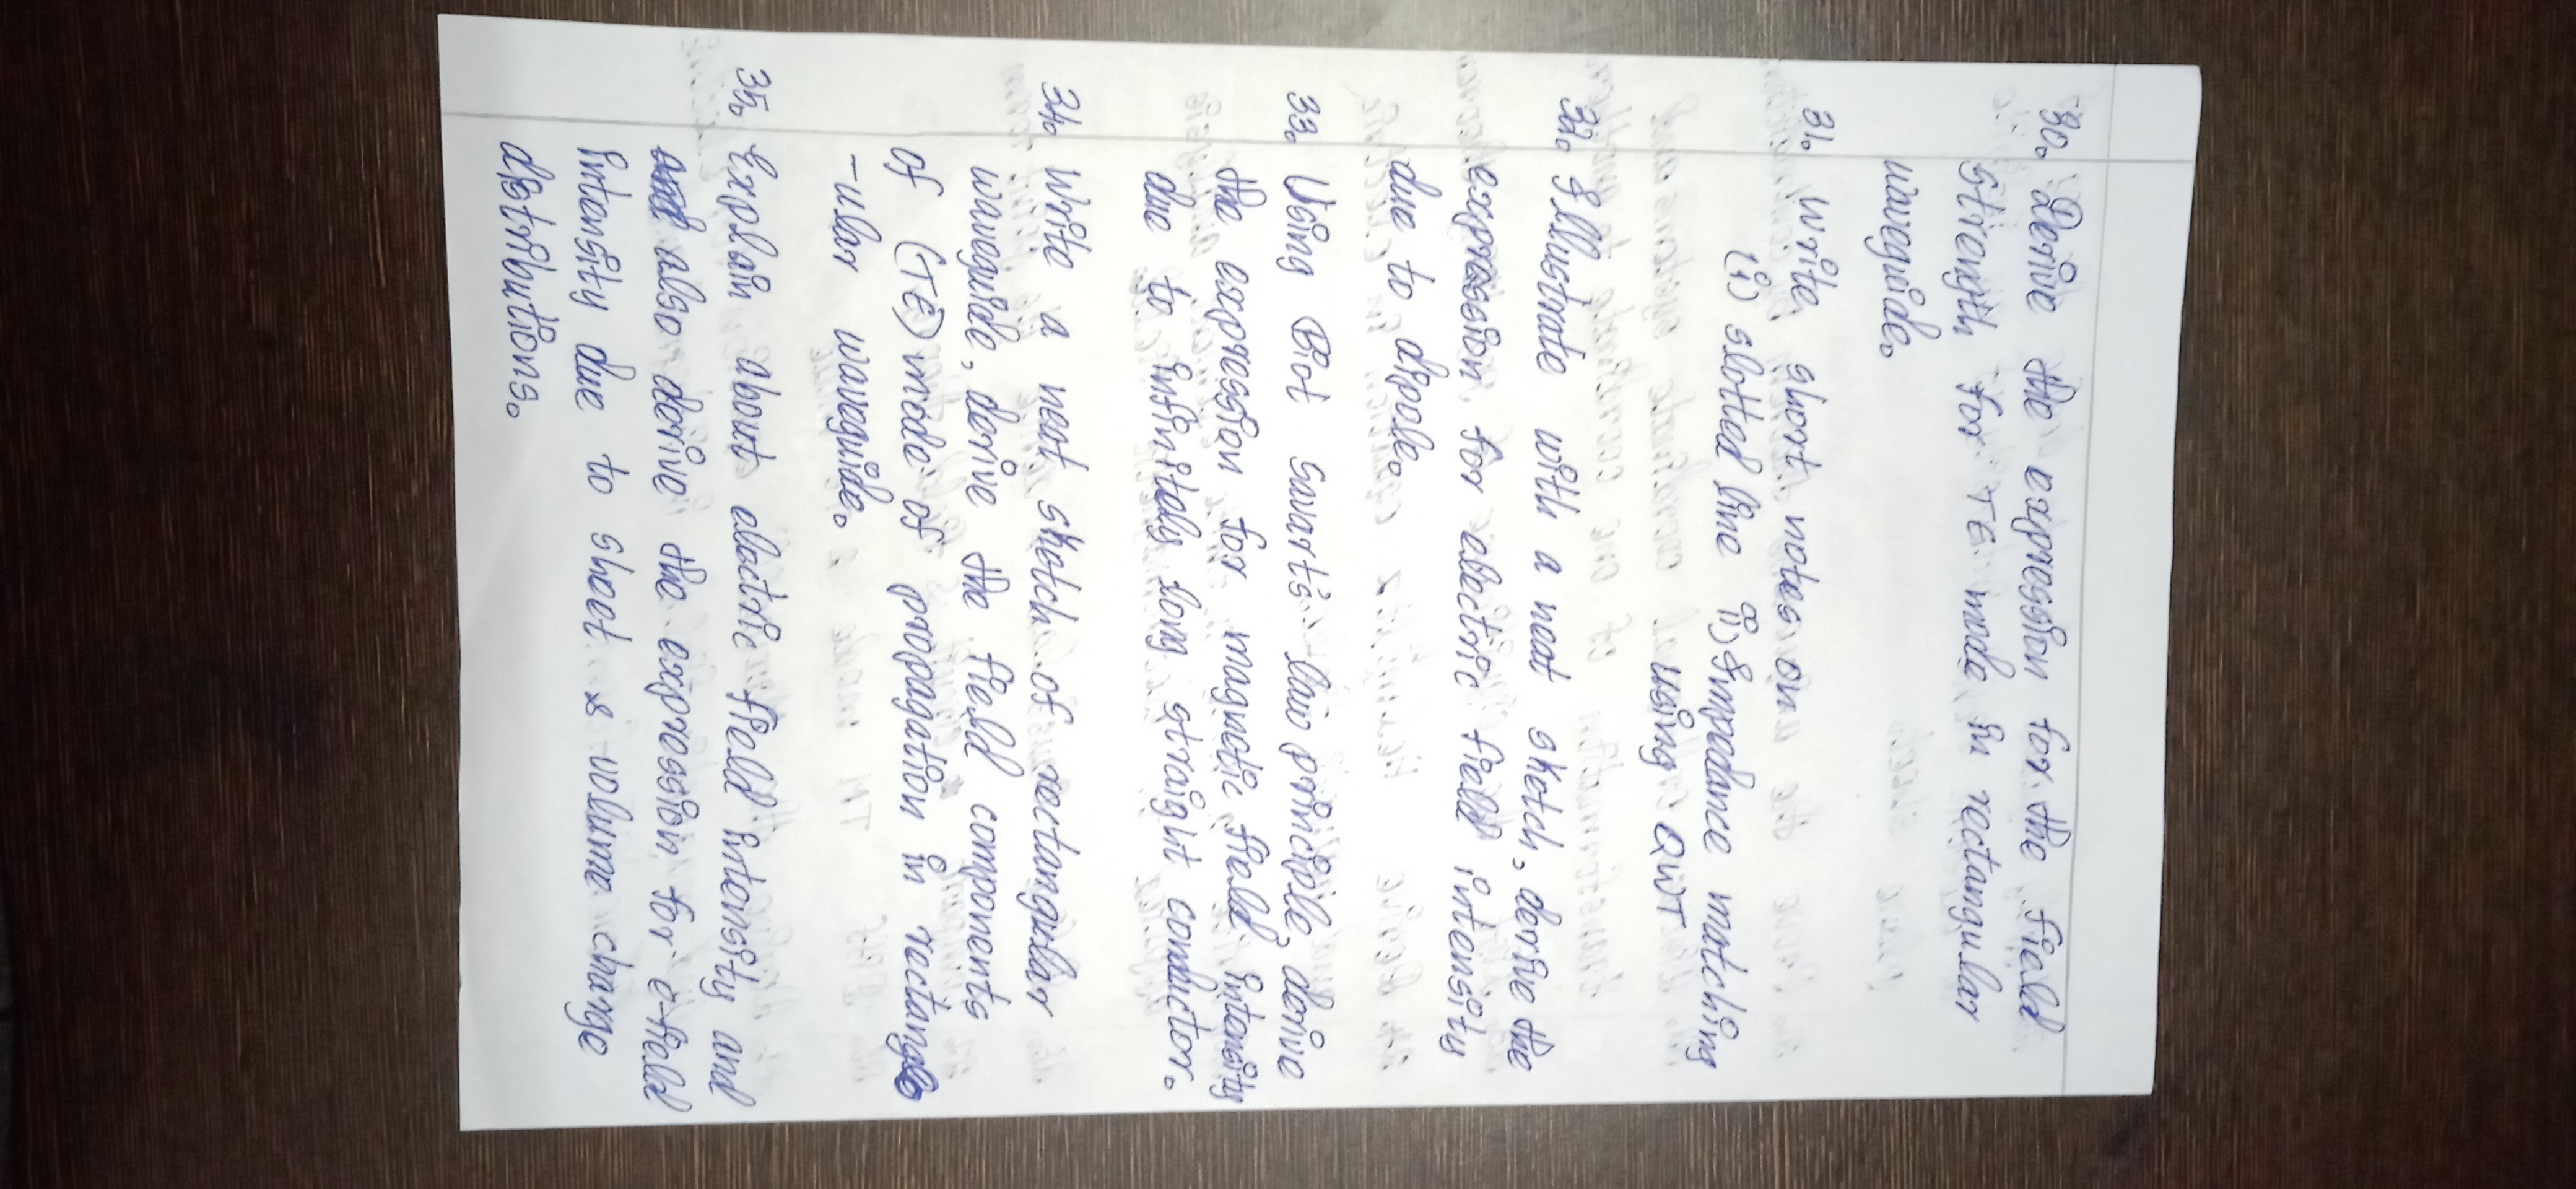 30. Derive the expression for the field
strength for TE mode in rectangular
waveguide.
31. write short notes on
(i) slotted line ii) Impedance matching
using QWT
32. Illustrate with a neat sketch, derive the
expression for electric field intensity
due to dipole.
33. Using Biot Savart's law principle, derive
the expression for magnetic field intensity
due to infinitely long straight conductor.
34. Write a neat sketch of rectangular
waveguide, derive the field components
of (TE) mode of propagation in rectang
-ular waveguide.
35. Explain about electric field intensity and
also derive the expression for e-field
intensity due to sheet & volume charge
distributions.